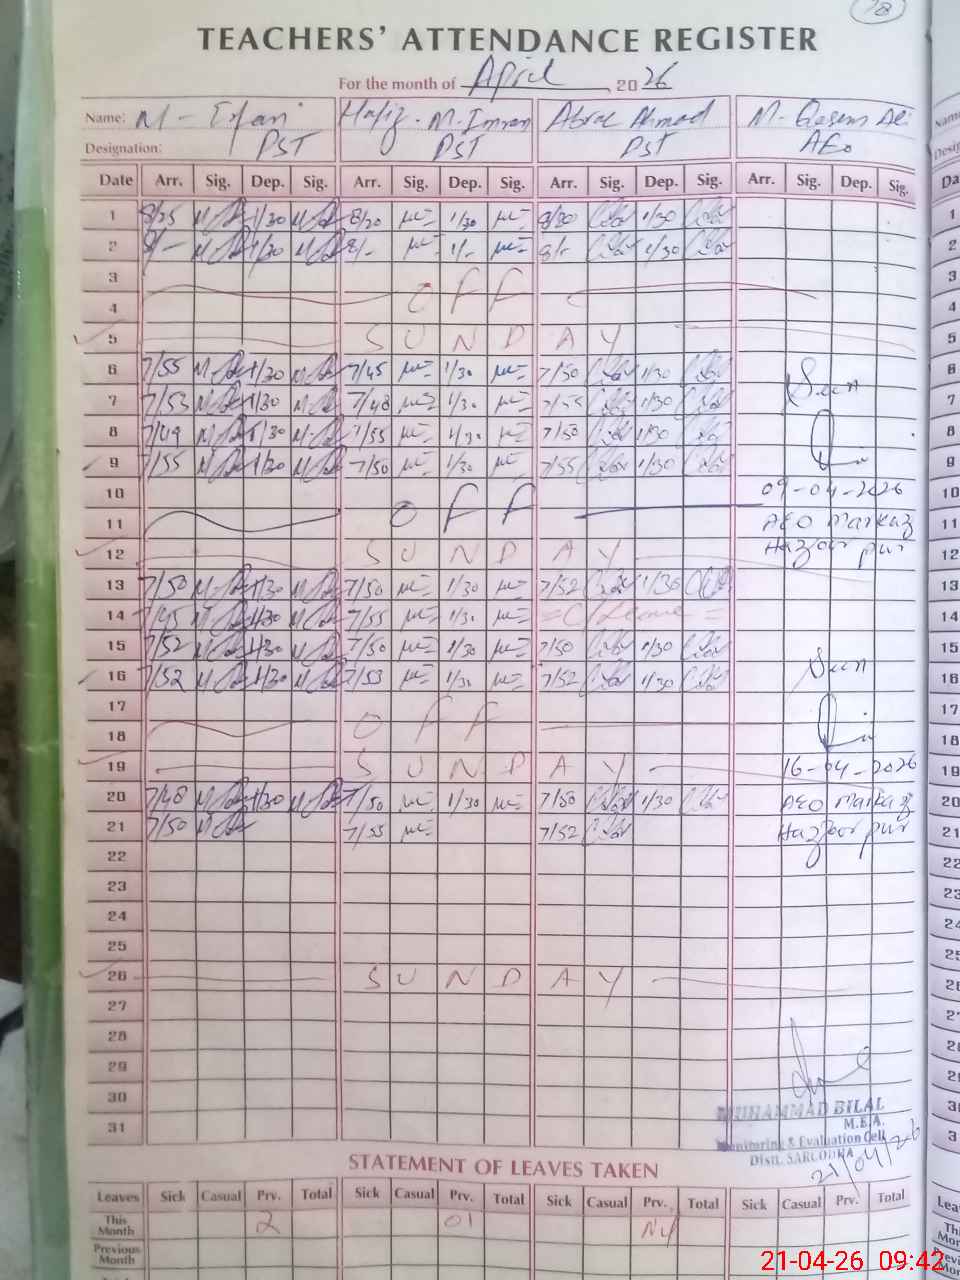 78
TEACHERS' ATTENDANCE REGISTER
For the month of April, 2026
Name: M - Irfan Hafiz. M. Imran Abrar Ahmad M. Qasim Ali
Designation: PST PST PST AEo
Date Arr. Sig. Dep. Sig. Arr. Sig. Dep. Sig. Arr. Sig. Dep. Sig. Arr. Sig. Dep. Sig.
1 8/25 1/30 8/20 1/30 8/20 1/30
2 8/- 1/30 8/- 1/- 8/- 1/30
3
4 OFF
5 SUNDAY
6 7/55 1/30 7/45 1/30 7/50 1/30
7 7/53 1/30 7/48 1/30 7/55 1/30 Seen
8 7/49 1/30 7/55 1/30 7/50 1/30
9 7/55 1/30 7/50 1/30 7/55 1/30
10 09-04-2026
11 OFF AEO Markaz
12 SUNDAY Hazoor pur
13 7/50 1/30 7/50 1/30 7/52 1/30
14 7/45 1/30 7/55 1/30 = C/Leave =
15 7/52 1/30 7/50 1/30 7/50 1/30
16 7/52 1/30 7/53 1/30 7/52 1/30 Seen
17
18 OFF
19 SUNDAY 16-04-2026
20 7/48 1/30 7/50 1/30 7/50 1/30 AEO Markaz
21 7/50 7/55 7/52 Hazoor pur
22
23
24
25
26 SUNDAY
27
28
29
30
31
MUHAMMAD BILAL
M.E.A.
Monitoring & Evaluation Cell
Distt. SARGODHA
21/04/26
STATEMENT OF LEAVES TAKEN
Leaves Sick Casual Prv. Total Sick Casual Prv. Total Sick Casual Prv. Total Sick Casual Prv. Total
This Month 2 01 Nil
Previous Month
21-04-26 09:42